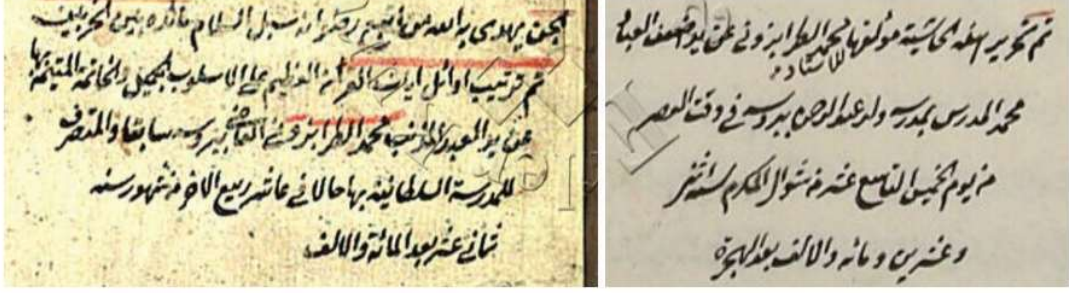 الحق يهدي به الله من اتبع رضوانه سبل السلام مائده بين الحزبين
تم ترتيب اوائل ايات القرآن العظيم على الاسلوب الجميل والخاتمة
عن يد العبد المذنب محمد الطرابزوني القاضي ببروسه سابقا والمتصرف
للمدرسة السلطانية بها حالا في عاشر ربيع الاخر من شهور سنه
ثماني عشر بعد المائة والالف
تم تحرير هذه الحاشية مؤلفها محمد الطرابزوني عن يد اضعف العباد
للاستاد
محمد المدرس بمدرسه ولد عبد الرحمن ببروسه في وقت العصر
من يوم الخميس التاسع عشر من شوال المكرم لسنه اثنى
وعشرين ومائه والالف بعد الهجرة